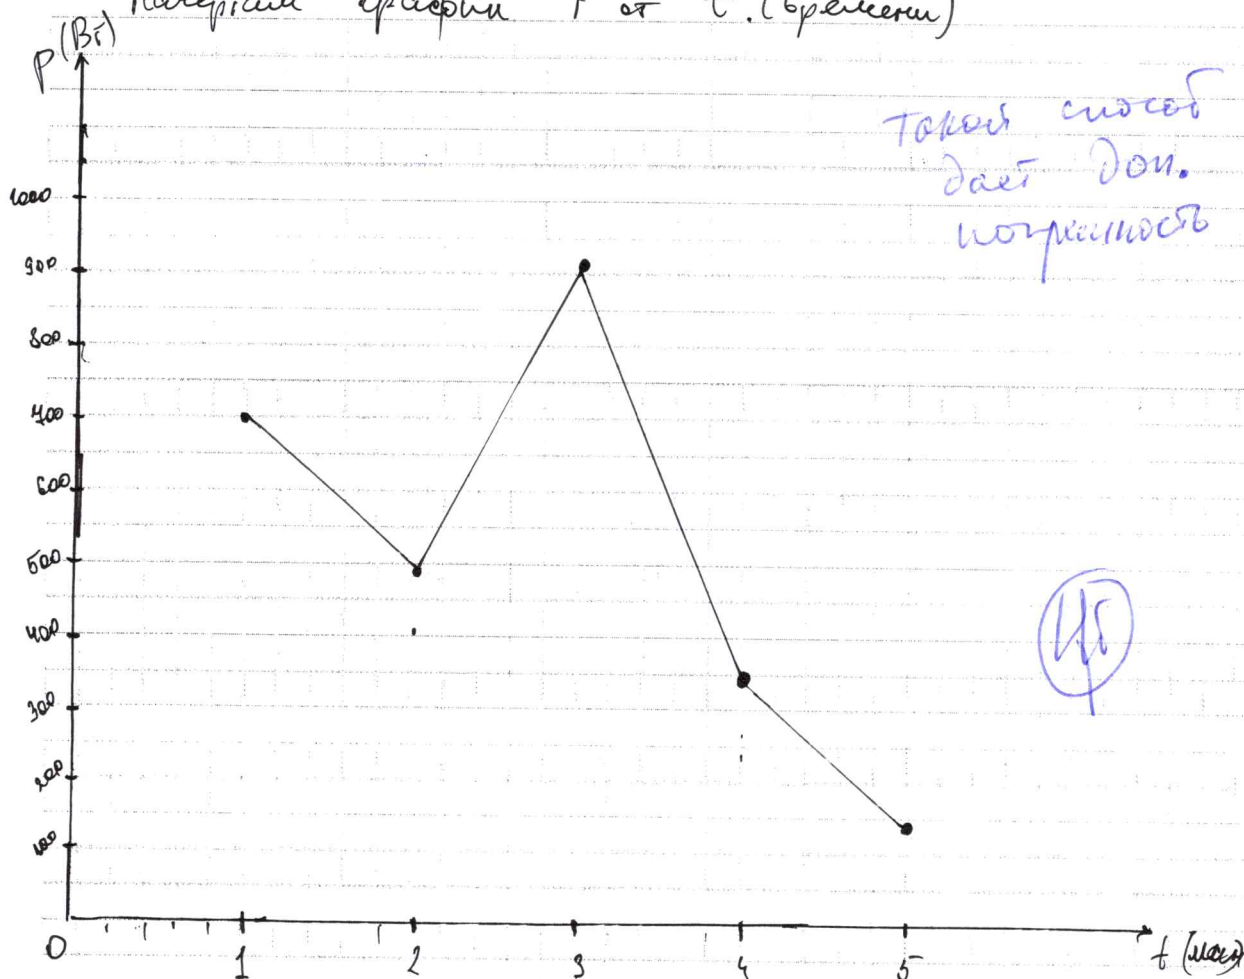 Начертим график P от t. (времени)
P(Вт)
Такой способ
дает доп.
погрешность
1000
900
800
700
600
500
400
300
200
100
0
1 2 3 4 5 t (мин)